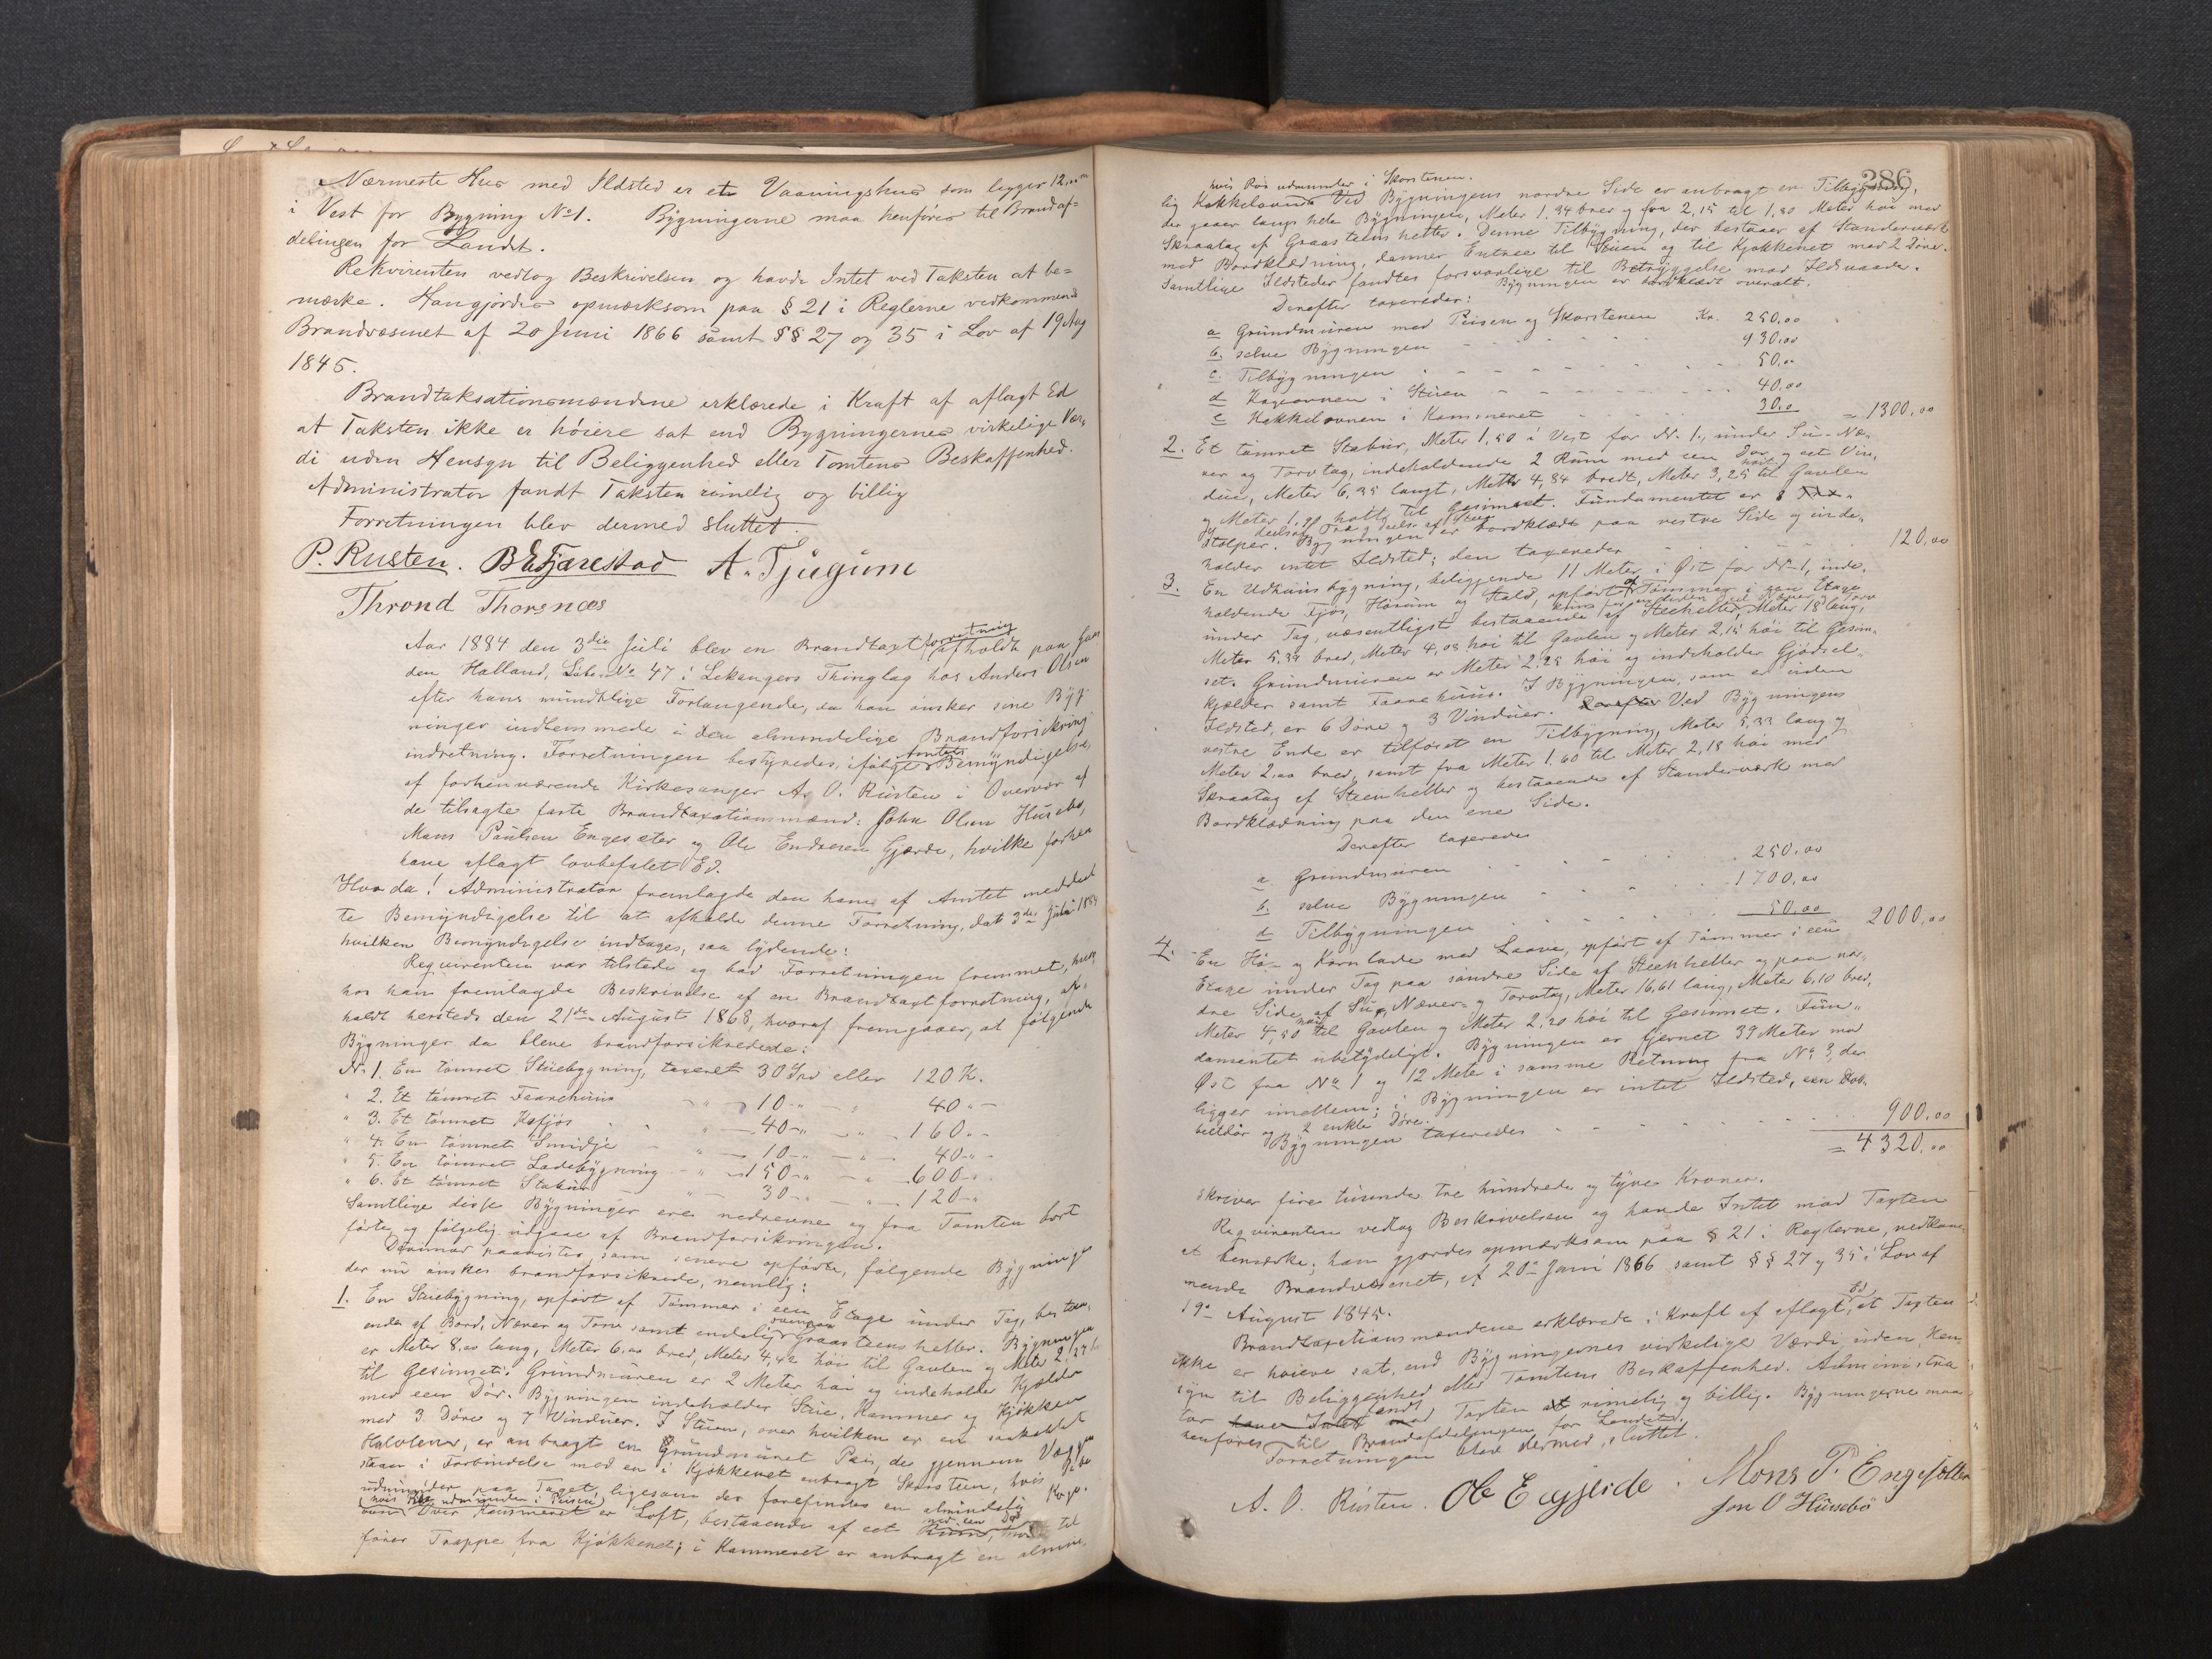 Nærmeste Hus med Ildsted er et Vaaningshus som ligger 12,00 m
i Vest for Bygning No 1. Bygningerne maa henføres til Brandaf=
delingen for Landet.
Rekvirenten vedtog Beskrivelsen og havde Intet ved Taksten at be=
mærke. Han gjordes opmærksom paa § 21 i Reglerne vedkommende
Brandvæsenet af 20 Juni 1866 samt §§ 27 og 35 i Lov af 19 Aug
1845.
Brandtaksationsmændene erklærede i Kraft af aflagt Ed
at Taksten ikke er høiere sat end Bygningernes virkelige Vær=
di uden Hensyn til Beliggenhed eller Tomtens Beskaffenhed.
Administrator fandt Taksten rimelig og billig
Forretningen blev dermed sluttet.
P. Rusten. B E Fjærestad A. Tjugum
Thrond Thorsnæs
Aar 1884 den 3die Juli blev en Brandtaxtforretning afholdt paa Gaar
den Halland, Løbe No 47 i Lekangers Thinglag hos Anders Olsen
efter hans mundtlige Forlangende, da han ønsker sine Byg-
ninger indlemmede i den almindelige Brandforsikrings
indretning. Forretningen bestyredes, ifølge Amtets Bemyndigelse,
af forhenværende Kirkesanger A. O. Rusten i Overvær af
de tilsagte faste Brandtaxationsmænd: John Olsen Husebø,
Mons Paulsen Engesæter og Ole Endresen Gjærde, hvilke forhen
have aflagt lovbefalet Ed.
Hvorda! Administrator fremlagde den ham af Amtet meddeel
te Bemyndigelse til at afholde denne Forretning, dat. 3die Juli 1884
hvilken Bemyndigelse indtages, saa lydende:
Reqvirenten var tilstede og bad Forretningen fremmet, hvor
hos han fremlagde Beskrivelse af en Brandtaxtforretning, af-
holdt hersteds den 21de August 1868, hvoraf fremgaaer, at følgende
Bygninger da bleve brandforsikrede:
No 1. En tømret Stuebygning, taxeret 30 Spd eller 120 K.
" 2. Et tømret Faarehuus " 10 " 40 "
" 3. Et tømret Kofjøs " 40 " 160 "
" 4. En tømret Smidje " 10 " 40 "
" 5. En tømret Ladebygning " 150 " 600 "
" 6. Et tømret Stabur " 30 " 120 "
Samtlige disse Bygninger ere nedrevne og fra Tomten bort
førte og følgelig udgaae af Brandforsikringen.
Derimod paavistes, som senere opførte, følgende Bygninger
der nu ønskes brandforsikrede, nemlig:
1. En Stuebygning, opført af Tømmer i een Etage under Tag, bestaa-
ende af Bord, Næver og Torv samt endelig Graasteens heller. Bygningen
er Meter 8,00 lang, Meter 6,00 bred, Meter 4,42 høi til Gavlen og Meter 2,27 h.
til Gesimset. Grundmuren er 2 Meter høi og indeholder Kjælder
med een Dør. Bygningen indeholder Stue, Kammer og Kjøkken
med 3 Døre og 7 Vinduer. I Stuen, over hvilken er en saakaldt
Halvlem, er anbragt en Grundmuret Peis, der gjennem Væggen
staaer i Forbindelse med en i Kjøkkenet anbragt Skorsteen, hvis Pibe
udmunder paa Taget, ligesom der forefindes en almindelig Kage-
ovn (hvis Rør udmunder i Peisen) Over Kammeret er Loft, bestaaende af eet Rum, med een Dør til
fører Trappe fra Kjøkkenet; i Kammeret er anbragt en almin-
286
hvis Rør udmunder i Skorstenen.
lig Kakkelovn. Ved Bygningens nordre Side er anbragt en Tilbygning,
der gaaer langs hele Bygningen, Meter 1,34 bred og fra 2,15 til 1,80 Meter høi med
Skraatag af Graasteens heller. Denne Tilbygning, der bestaaer af Standerværk
med Bordklædning, danner Entree til Stuen og til Kjøkkenet med 2 Døre.
Samtlige Ildsteder fandtes forsvarlige til Betryggelse mod Ildsvaade.
Bygningen er bordklædt overalt.
Derefter taxeredes:
a Grundmuren med Peisen og Skorstenen Kr. 250,00
b. selve Bygningen 930,00
c. Tilbygningen 50,00
d Kageovnen i Stuen 40,00
e Kakkelovnen i Kammeret 30,0 = 1300,00
2. Et tømret Stabur, Meter 1,50 i Vest for No 1, under Su- Næ-
ver og Torvtag, indeholdende 2 Rum med een Dør og eet Vin-
due, Meter 6,35 langt, Meter 4,84 bredt, Meter 3,25 høit til Gavlen
og Meter 1,90 høit til Gesimset. Fundamentet er
deels af Træ og deels af Steen
Stolper. Bygningen er bordklædt paa vestre Side og inde-
holder intet Ildsted; den taxeredes 120,00
3. En Udhuusbygning, beliggende 11 Meter i Øst for No 1, inde-
holdende Fjøs, Hørum og Stald, opført af Tømmer i een Etage
under Tag, væsentligst bestaaende af Steenheller, Meter 18 lang,
Meter 5,33 bred, Meter 4,08 høi til Gavlen og Meter 2,15 høi til Gesim-
set. Grundmuren er Meter 2,25 høi og indeholder Gjødsel-
kjælder samt Faarehuus. I Bygningen, som er uden
Ildsted, er 6 Døre og 3 Vinduer. Derefter Ved Bygningens
vestre Ende er tilføiet en Tilbygning, Meter 5,33 lang og
Meter 2,00 bred, samt fra Meter 1.60 til Meter 2,18 høi med
Skraatag af Steenheller og bestaaende af Standerværk med
Bordklædning paa den ene Side.
Derefter taxeredes
a Grundmuren 250,00
b. selve Bygningen 1700,00
d Tilbygningen 50,00 2000,00
4. En Hø- og Kornlade med Laave, opført af Tømmer i een
Etage under Tag paa søndre Side af Steenheller og paa nor-
dre Side af Su-, Næver- og Torvtag, Meter 16,61 lang, Meter 6,10 bred,
Meter 4,50 høi til Gavlen og Meter 2,20 høi til Gesimset. Fun-
damentet ubetydeligt. Bygningen er fjernet 39 Meter mod
Øst fra No 1 og 12 Meter i samme Retning fra No 3, der
ligger imellem; i Bygningen er intet Ildsted, een Dob-
beltdør og 2 enkle Døre.
Bygningen taxeredes 900,00
= 4320,00
skriver fire tusinde tre hundrede og tyve Kroner.
Reqvirenten vedtog Beskrivelsen og havde Intet mod Taxten
at bemærke; han gjordes opmærksom paa § 21 i Reglerne, vedkom-
mende Brandvæsenet, af 20de Juni 1866 samt §§ 27 og 35 i Lov af
19de August 1845.
Brandtaxationsmændene erklærede i Kraft af aflagt Ed, at Taxten
ikke er høiere sat, end Bygningernes virkelige Værdi, uden Hen-
syn til Beliggenhed eller Tomtens Beskaffenhed. Administra
tor fandt Taxten rimelig og billig. Bygningerne maa
henføres til Brandafdelingen for Landet.
Forretningen blev dermed sluttet.
A. O. Rusten. Ole E Gjerde. Mons P. Engesæter
Jon O Husebø